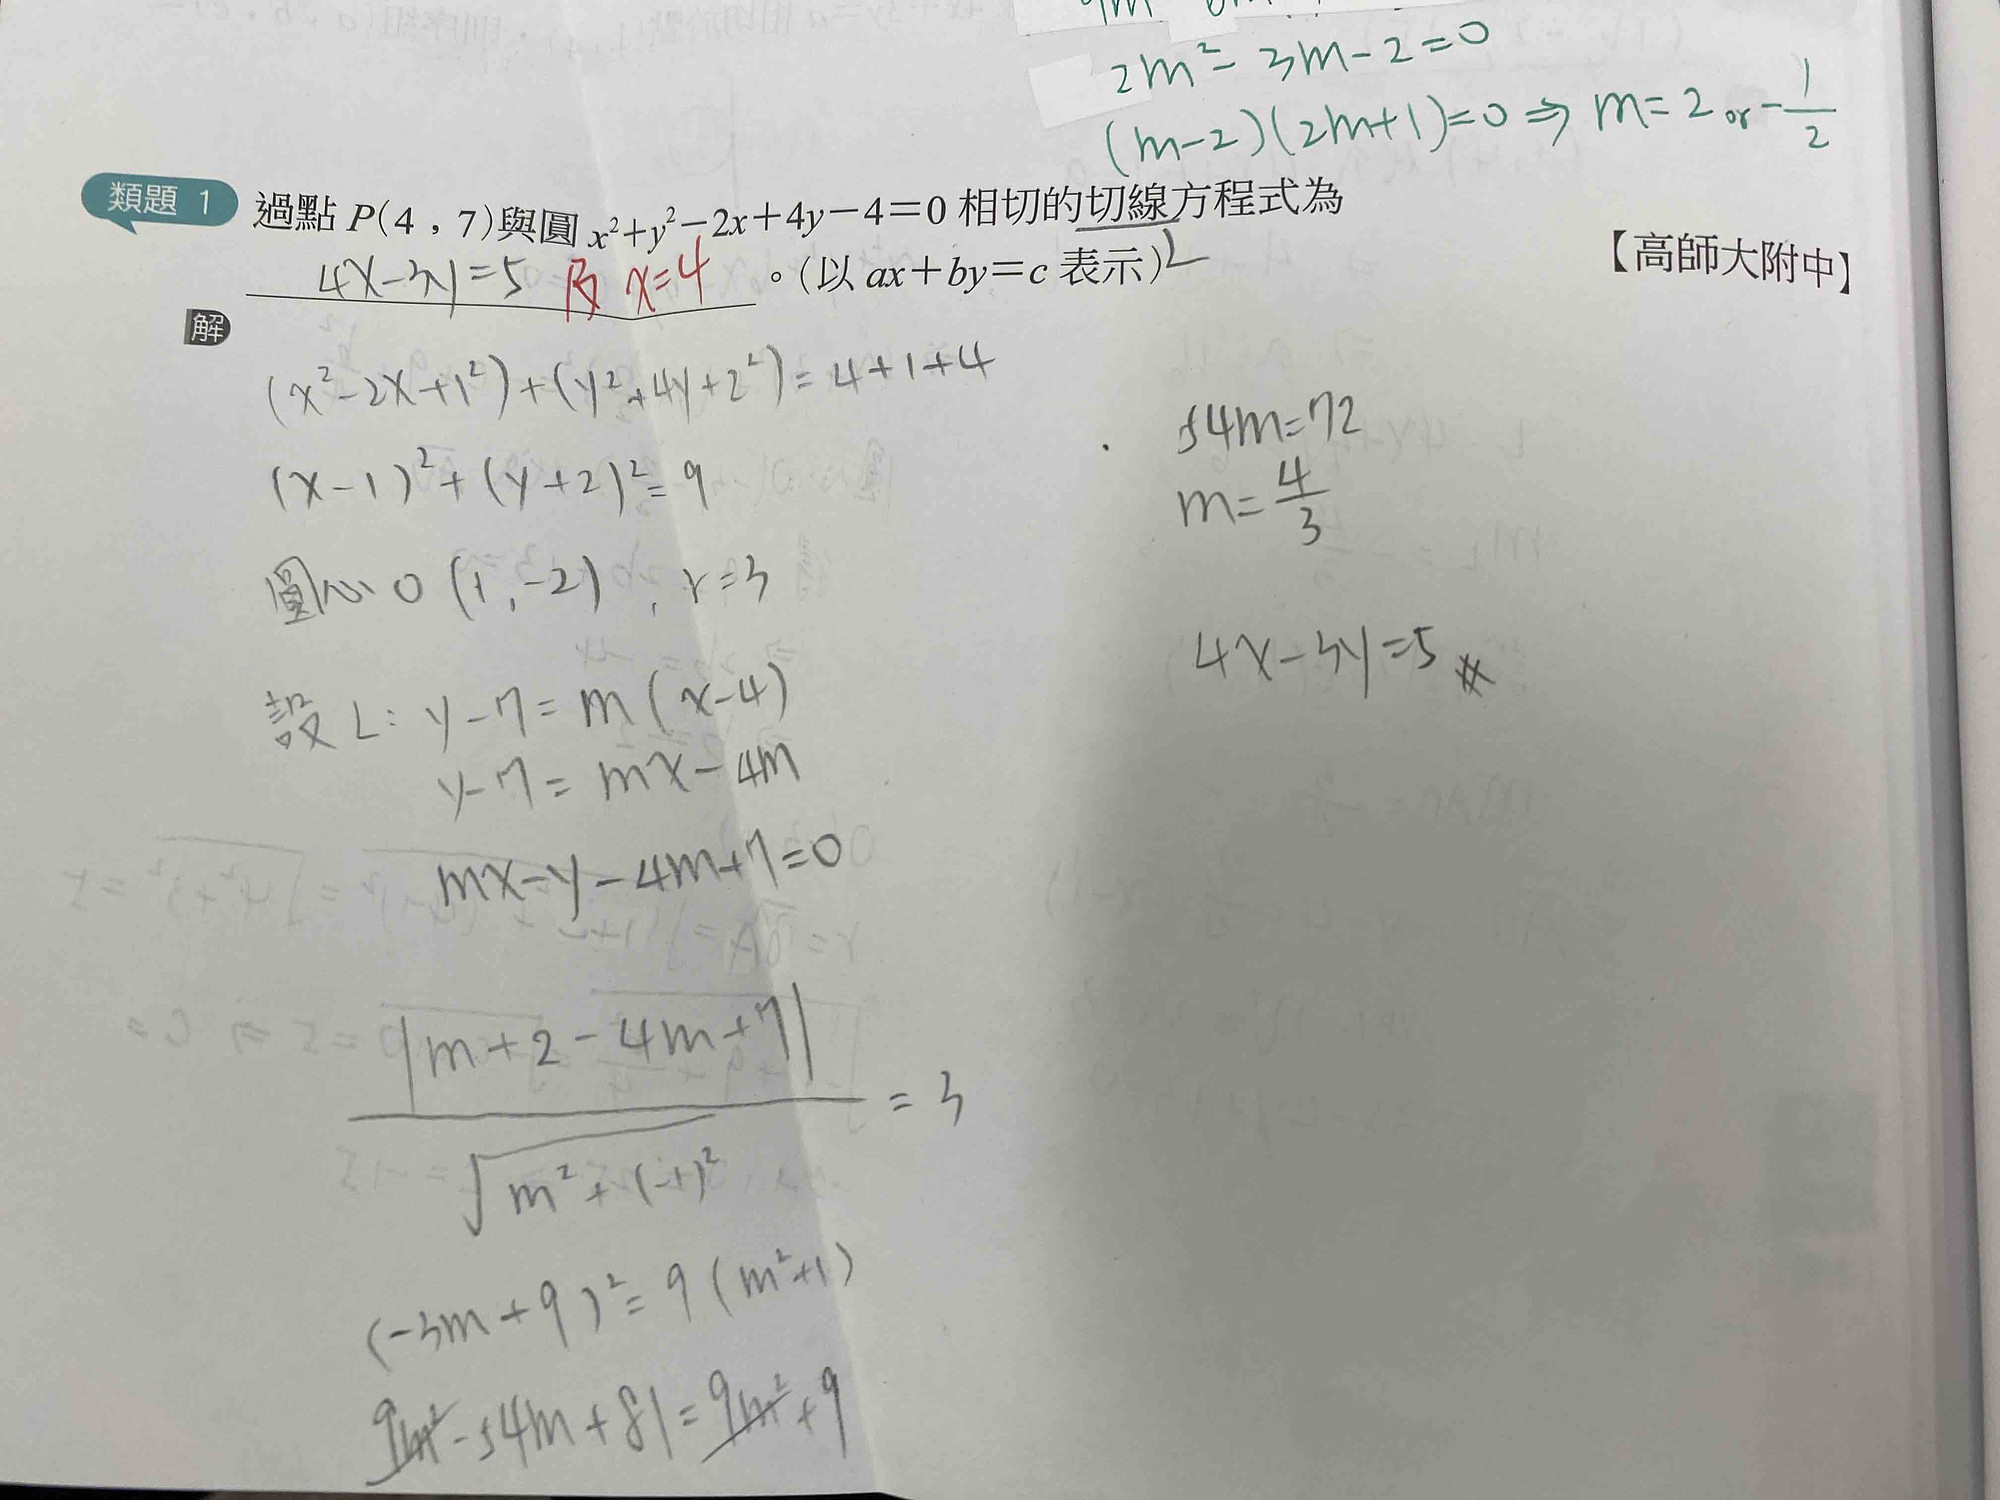 2m²-3m-2=0
(m-2)(2m+1)=0⇒m=2 or -1/2
類題 1 過點 P(4,7)與圓 x²+y²-2x+4y-4=0 相切的切線方程式為
4x-3y=5 及 x=4 。(以 ax+by=c 表示) L
【高師大附中】
解
(x²-2x+1²)+(y²+4y+2²)=4+1+4
(x-1)²+(y+2)²=9
圓心 O (1,-2) , r=3
設 L: y-7=m(x-4)
y-7=mx-4m
mx-y-4m+7=0
|m+2-4m+7|/√m²+(-1)² = 3
(-3m+9)²=9(m²+1)
9m²-54m+81=9m²+9
54m=72
m=4/3
4x-3y=5 #